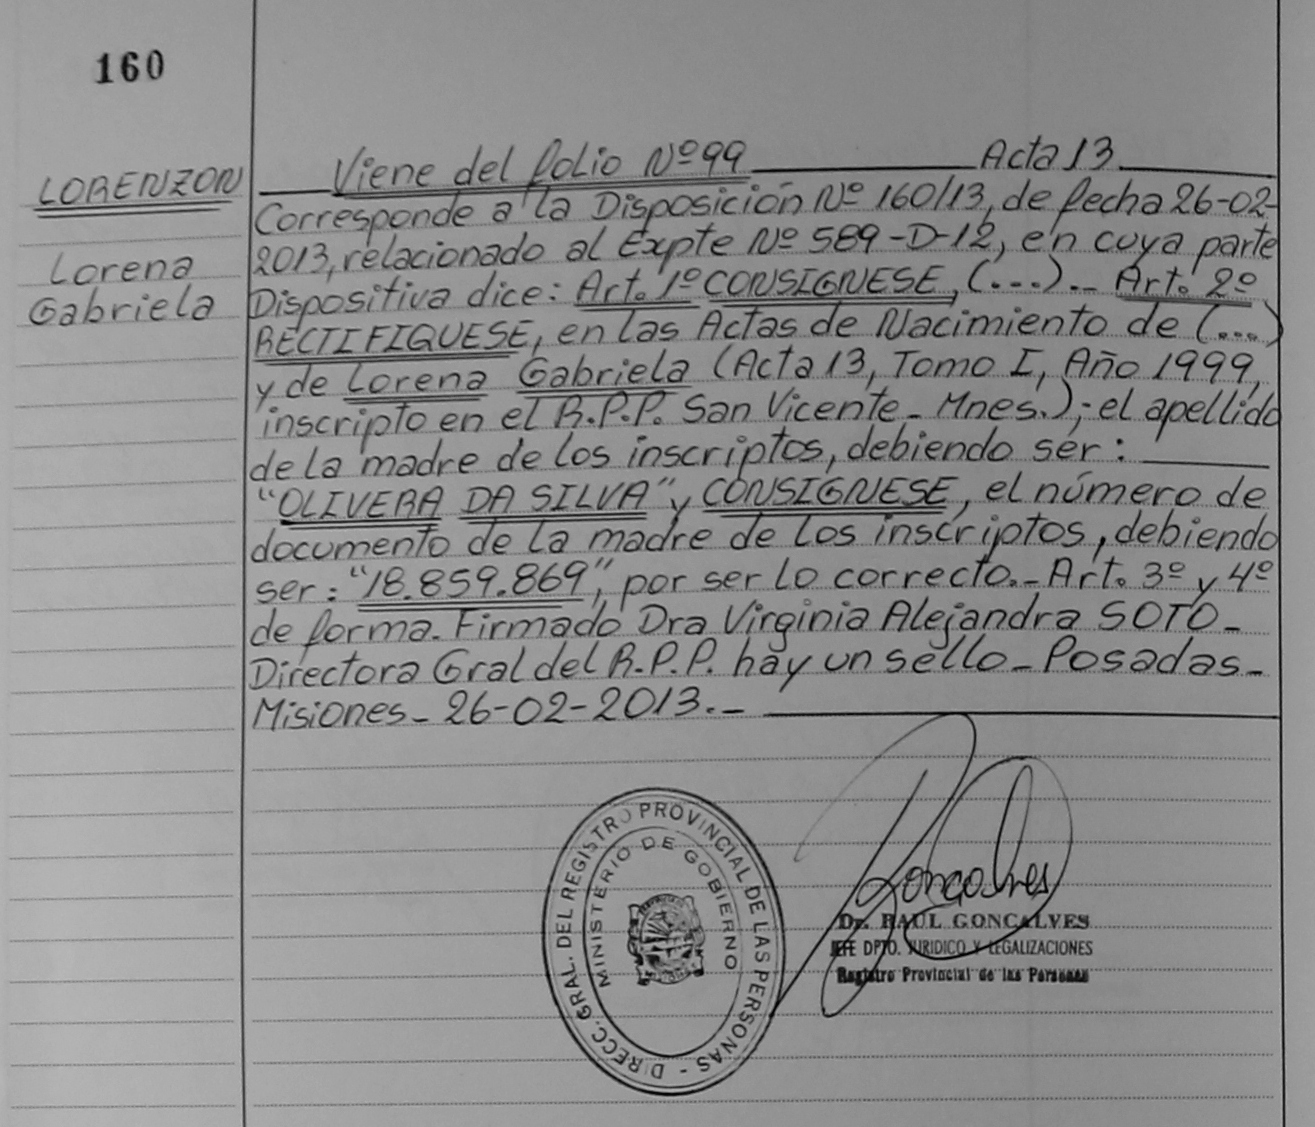 160
LORENZON
Lorena
Gabriela
Viene del folio Nº 99 Acta 13
Corresponde a la Disposición Nº 160/13, de fecha 26-02-
2013, relacionado al Expte Nº 589-D-12, en cuya parte
Dispositiva dice: Art. 1º CONSIGNESE, (...).- Art. 2º
RECTIFIQUESE, en las Actas de Nacimiento de (...)
y de Lorena Gabriela (Acta 13, Tomo I, Año 1999,
inscripto en el R.P.P. San Vicente - Mnes.); el apellido
de la madre de los inscriptos, debiendo ser:
"OLIVERA DA SILVA" y CONSIGNESE, el número de
documento de la madre de los inscriptos, debiendo
ser: "18.859.869", por ser lo correcto.- Art. 3º y 4º
de forma. Firmado Dra Virginia Alejandra SOTO -
Directora Gral del R.P.P. hay un sello - Posadas -
Misiones - 26-02-2013.-
DIRECC. GRAL. DEL REGISTRO PROVINCIAL DE LAS PERSONAS -
MINISTERIO DE GOBIERNO
Goncalves
Dr. RAUL GONCALVES
JEFE DPTO. JURIDICO Y LEGALIZACIONES
Registro Provincial de las Personas